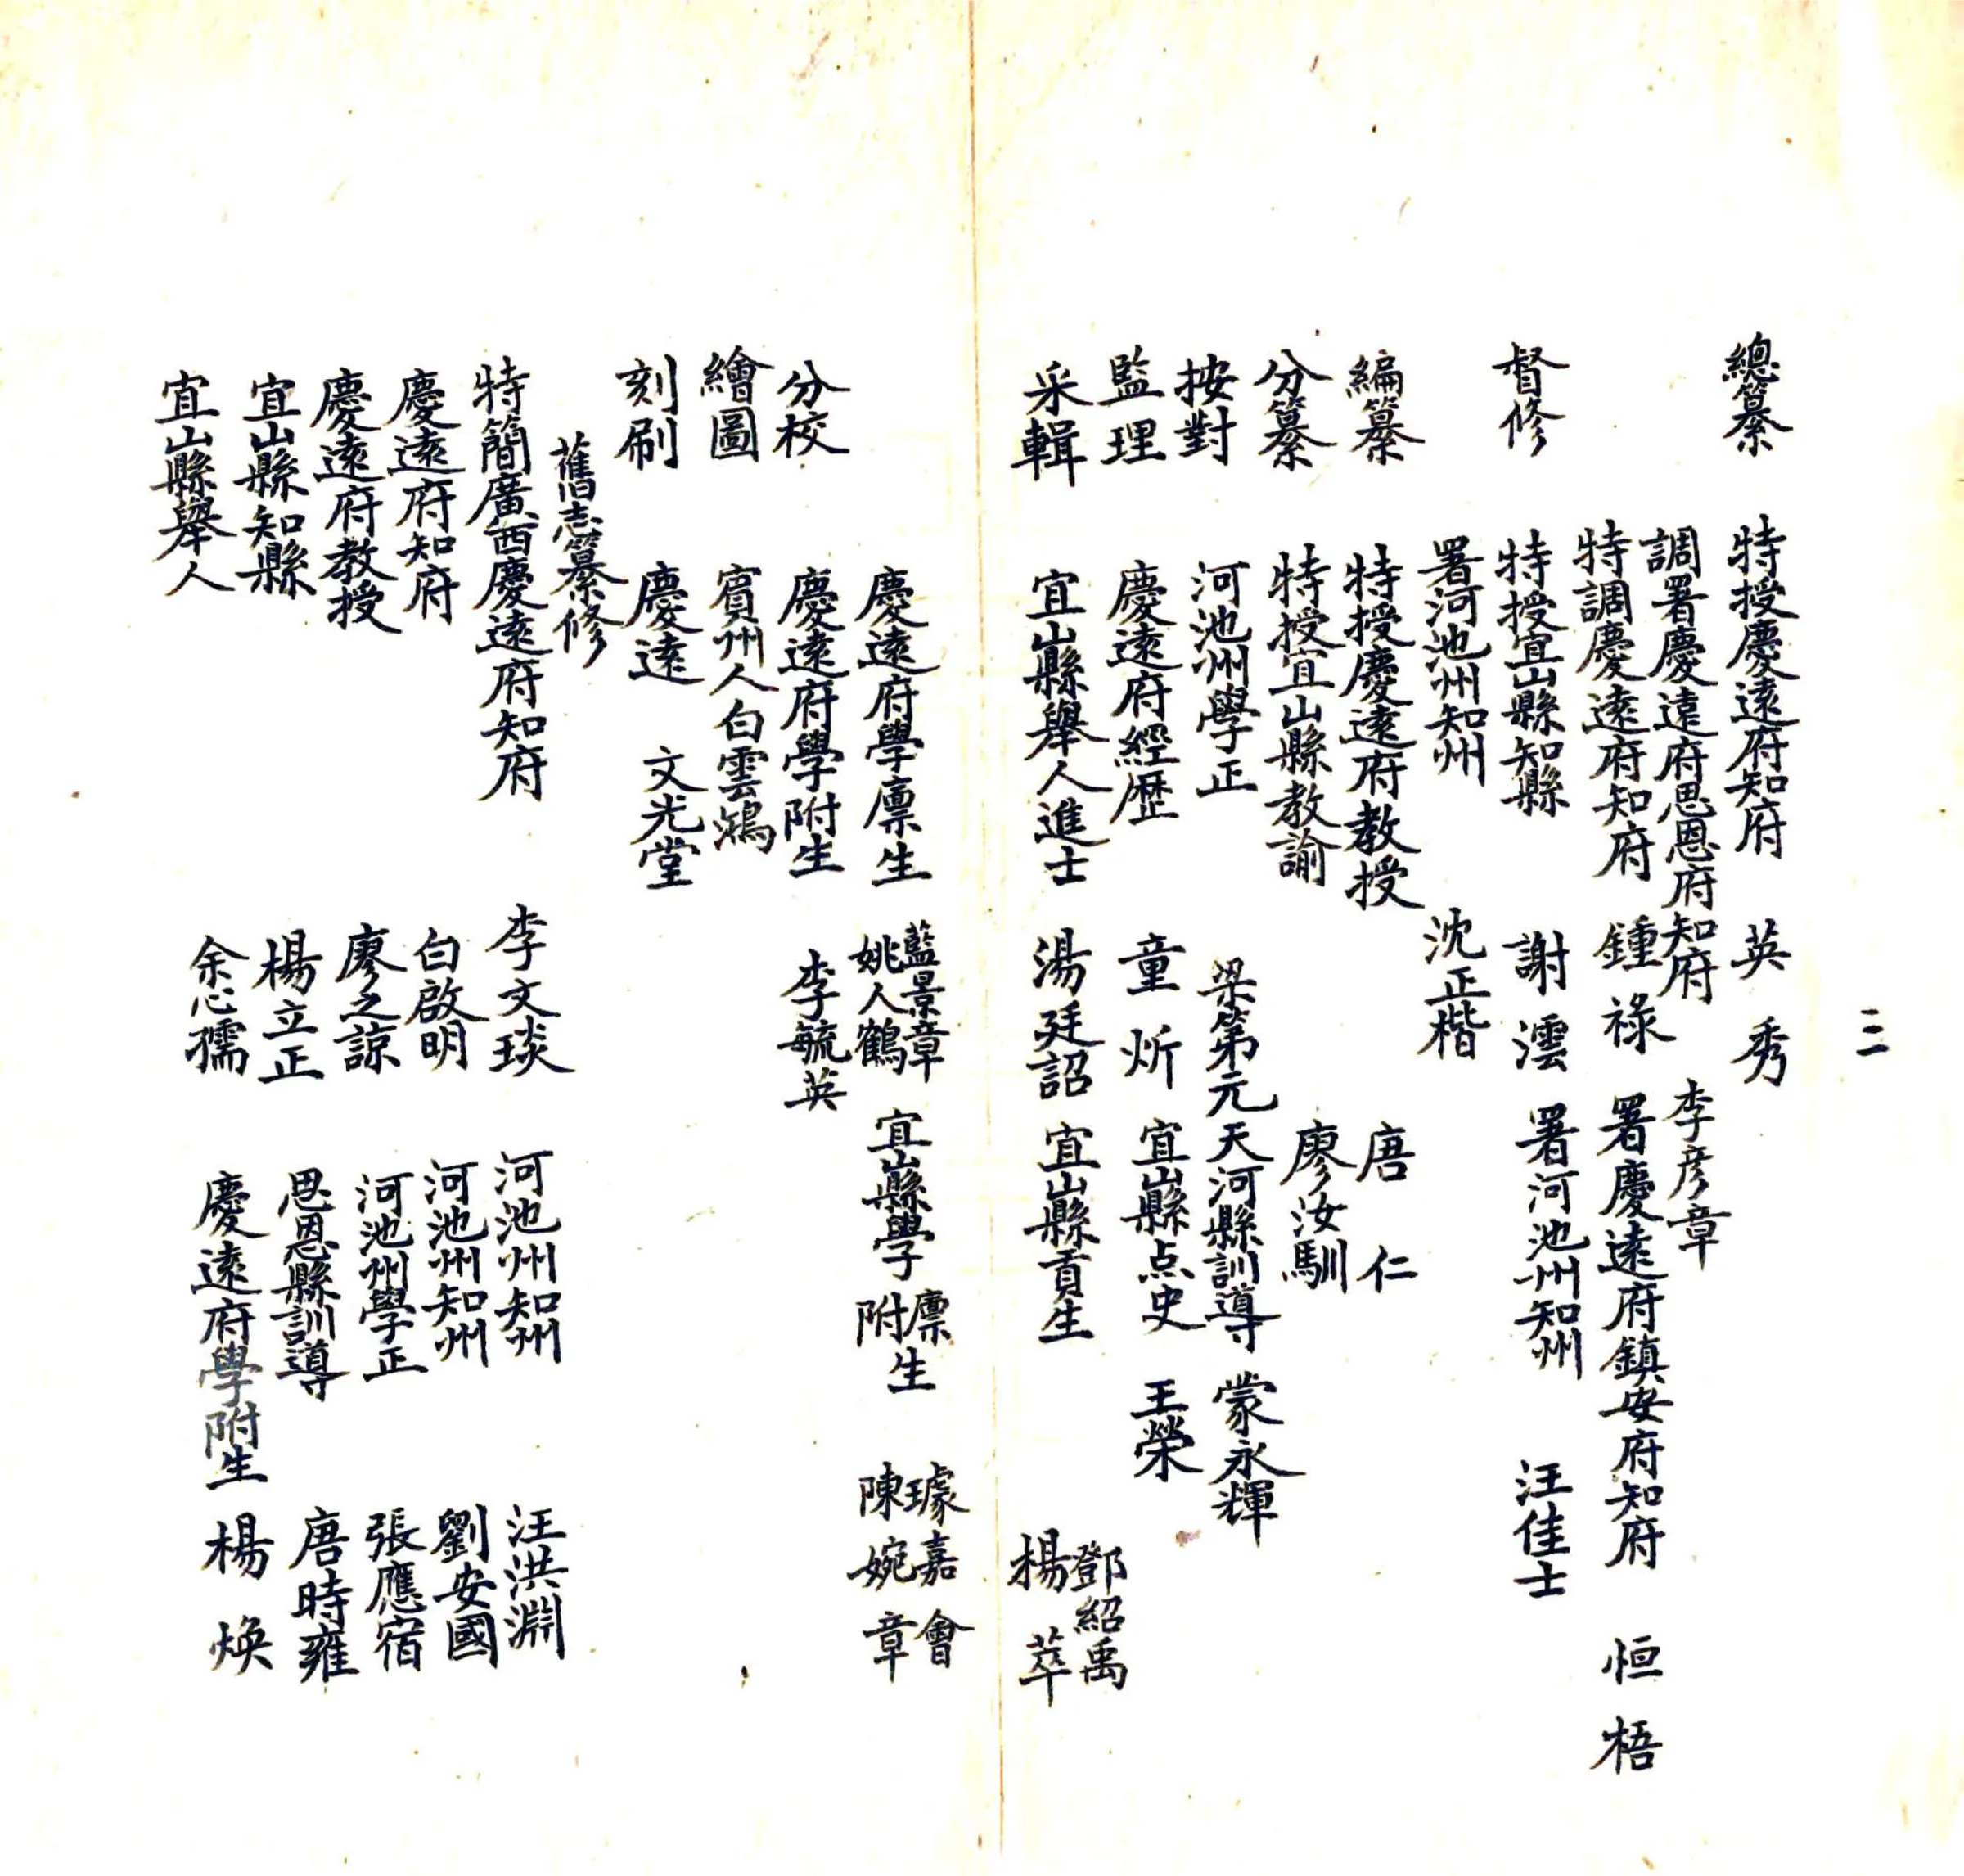 三
總纂 特授慶遠府知府 英秀
調署慶遠府思恩府知府 李彥章
特調慶遠府知府 鍾祿 署慶遠府鎮安府知府 恒梧
督修 特授宜山縣知縣 謝澐 署河池州知州 汪佳士
署河池州知州 沈正楷
編纂 特授慶遠府教授 唐仁
分纂 特授宜山縣教諭 廖汝馴
按對 河池州學正 梁第元 天河縣訓導 蒙永輝
監理 慶遠府經歷 童炘 宜山縣点史 王榮
采輯 宜山縣舉人進士 湯廷詔 宜山縣貢生 鄧紹禹 楊萃
慶遠府學廪生 藍景章 姚人鶴 宜山縣學廪附生 璩嘉會 陳婉章
分校 慶遠府學附生 李毓英
繪圖 賓州人白雲鴻
刻刷 慶遠 文光堂
舊志纂修
特簡廣西慶遠府知府 李文琰 河池州知州 汪洪淵
慶遠府知府 白啟明 河池州知州 劉安國
慶遠府教授 廖之諒 河池州學正 張應宿
宜山縣知縣 楊立正 思恩縣訓導 唐時雍
宜山縣舉人 余心孺 慶遠府學附生 楊煥